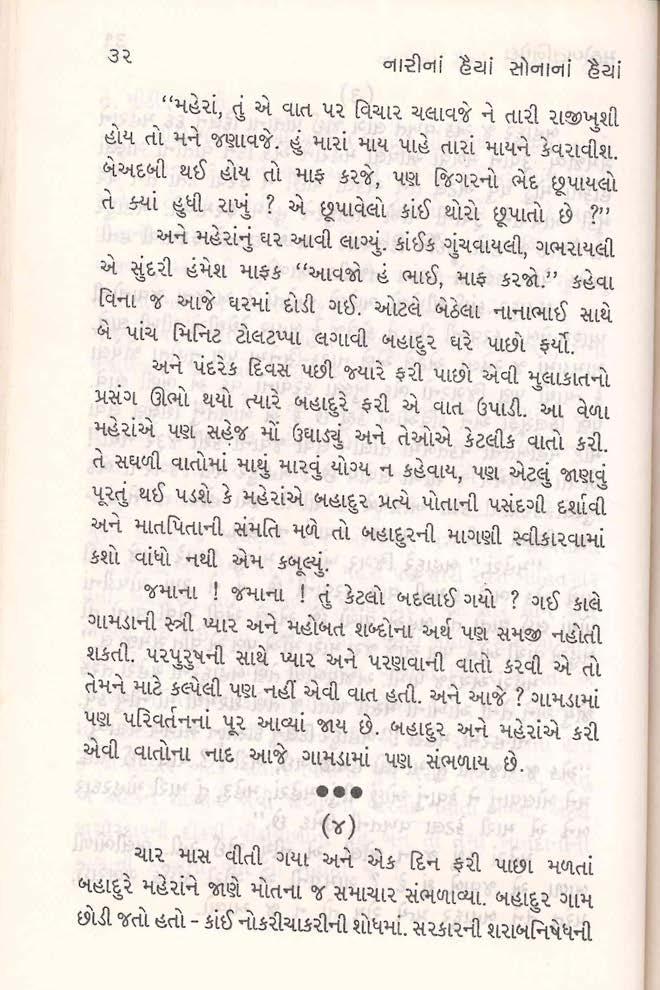 ૩૨
નારીનાં હૈયાં સોનાનાં હૈયાં
“મહેરાં, તું એ વાત પર વિચાર ચલાવજે ને તારી રાજીખુશી
હોય તો મને જણાવજે. હું મારાં માય પાહે તારાં માયને કેવરાવીશ.
બેઅદબી થઈ હોય તો માફ કરજે, પણ જિગરનો ભેદ છૂપાયલો
તે ક્યાં હુધી રાખું ? એ છૂપાવેલો કાંઈ થોરો છૂપાતો છે ?”
અને મહેરાંનું ઘર આવી લાગ્યું. કાંઈક ગુંચવાયલી, ગભરાયલી
એ સુંદરી હંમેશ માફક “આવજો હં ભાઈ, માફ કરજો.” કહેવા
વિના જ આજે ઘરમાં દોડી ગઈ. ઓટલે બેઠેલા નાનાભાઈ સાથે
બે પાંચ મિનિટ ટોલટપ્પા લગાવી બહાદુર ઘરે પાછો ફર્યો.
અને પંદરેક દિવસ પછી જ્યારે ફરી પાછો એવી મુલાકાતનો
પ્રસંગ ઊભો થયો ત્યારે બહાદુરે ફરી એ વાત ઉપાડી. આ વેળા
મહેરાંએ પણ સહેજ મોં ઉઘાડ્યું અને તેઓએ કેટલીક વાતો કરી.
તે સઘળી વાતોમાં માથુ મારવું યોગ્ય ન કહેવાય, પણ એટલું જાણવું
પૂરતું થઈ પડશે કે મહેરાંએ બહાદુર પ્રત્યે પોતાની પસંદગી દર્શાવી
અને માતપિતાની સંમતિ મળે તો બહાદુરની માગણી સ્વીકારવામાં
કશો વાંધો નથી એમ કબૂલ્યું.
જમાના ! જમાના ! તું કેટલો બદલાઈ ગયો ? ગઈ કાલે
ગામડાની સ્ત્રી પ્યાર અને મહોબત શબ્દોના અર્થ પણ સમજી નહોતી
શકતી. પરપુરુષની સાથે પ્યાર અને પરણવાની વાતો કરવી એ તો
તેમને માટે કલ્પેલી પણ નહીં એવી વાત હતી. અને આજે ? ગામડામાં
પણ પરિવર્તનનાં પૂર આવ્યાં જાય છે. બહાદુર અને મહેરાંએ કરી
એવી વાતોના નાદ આજે ગામડામાં પણ સંભળાય છે.
●●●
(૪)
ચાર માસ વીતી ગયા અને એક દિન ફરી પાછા મળતાં
બહાદુરે મહેરાંને જાણે મોતના જ સમાચાર સંભળાવ્યા. બહાદુર ગામ
છોડી જતો હતો - કાંઈ નોકરીચાકરીની શોધમાં. સરકારની શરાબનિષેધની